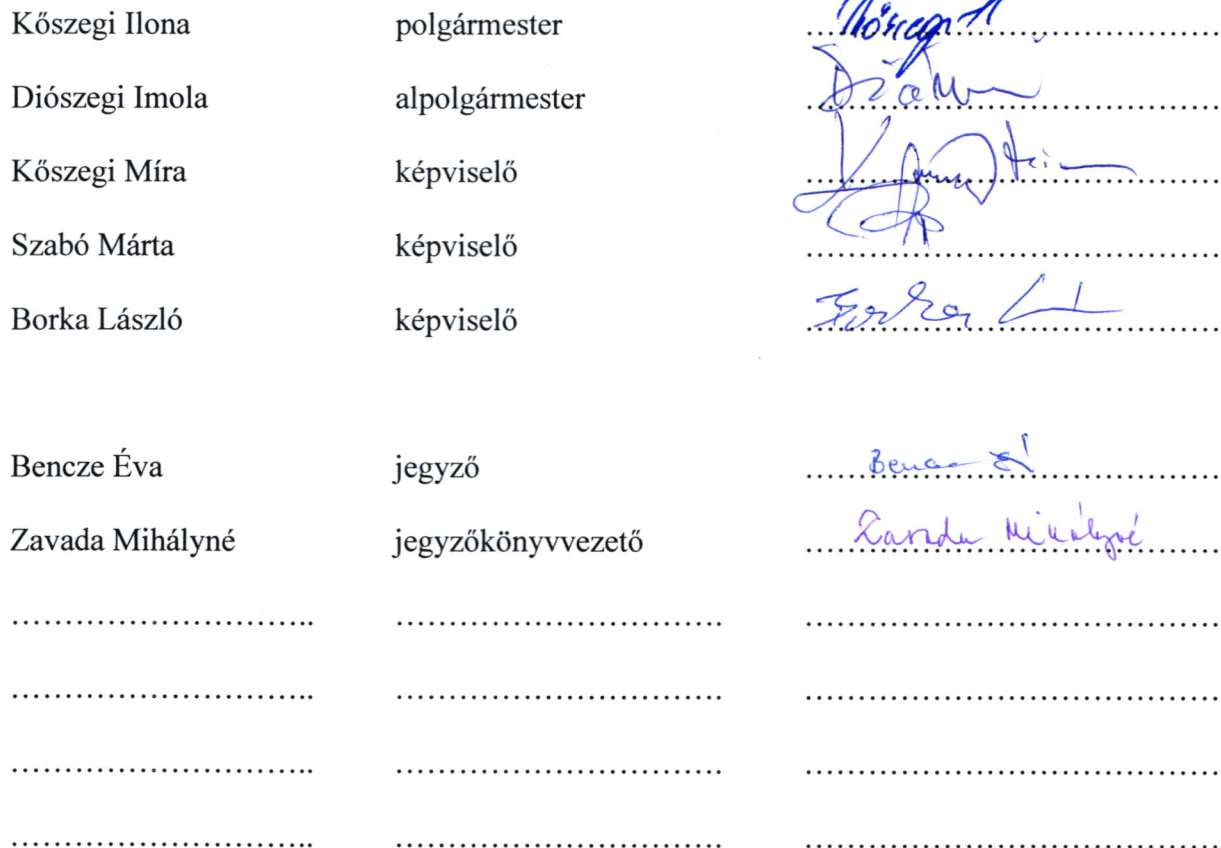 Kőszegi Ilona polgármester Kőszegi I
Diószegi Imola alpolgármester
Kőszegi Míra képviselő
Szabó Márta képviselő
Borka László képviselő Borka L
Bencze Éva jegyző Bencze É
Zavada Mihályné jegyzőkönyvvezető Zavada Mihályné